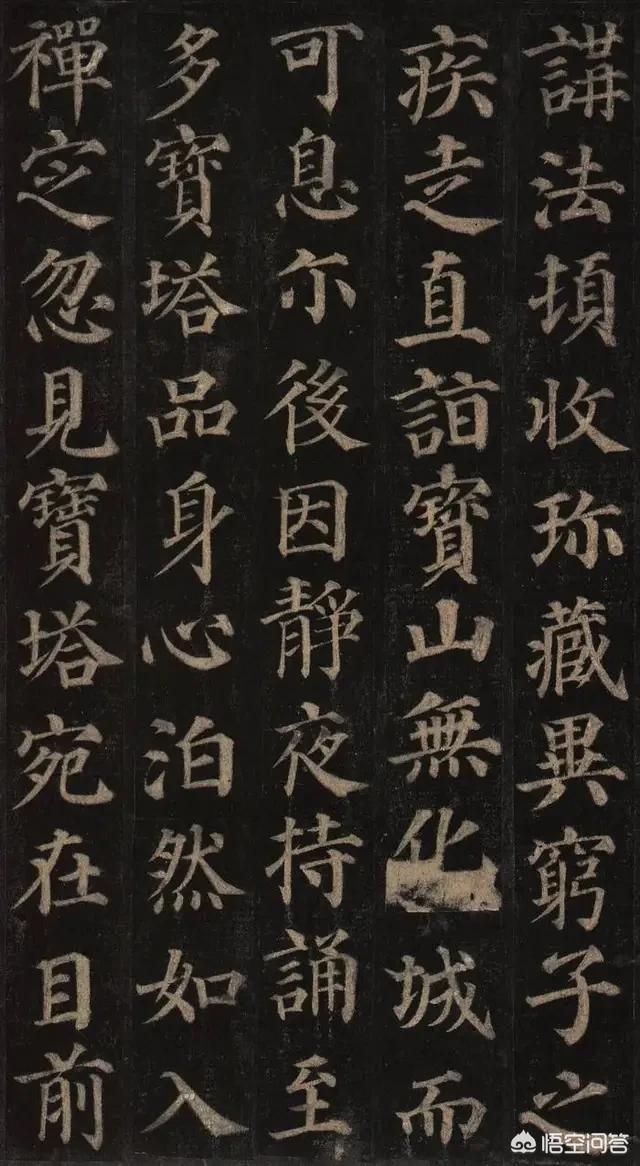 講法頓收珎藏異窮子之
疾走直詣寶山無化城而
可息尒後因靜夜持誦至
多寶塔品身心泊然如入
禪定忽見寶塔宛在目前
悟空问答